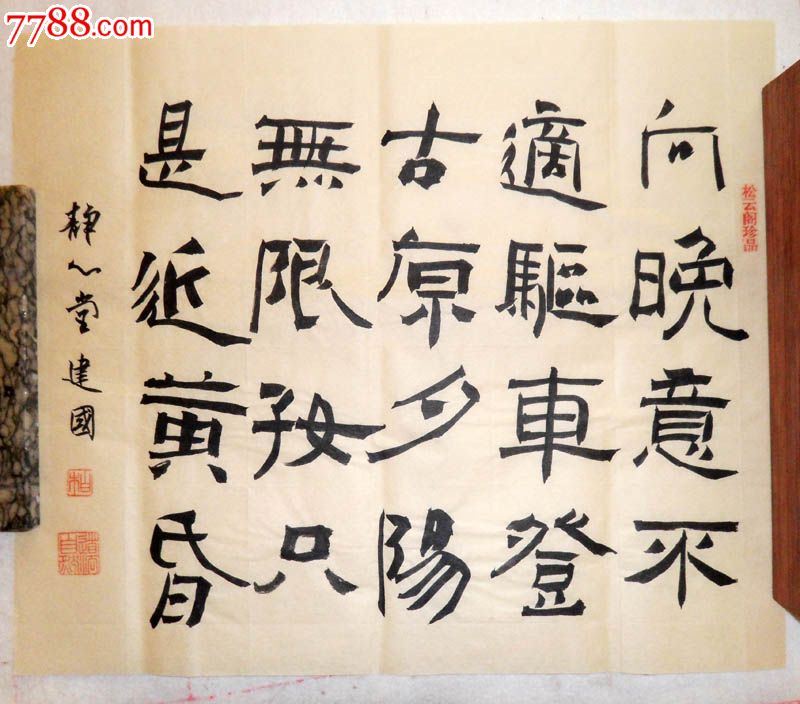 7788.com
中国收藏热线
松云阁珍品
向晚意不
適驅車登
古原夕陽
無限好只
是近黄昏
静心堂建國